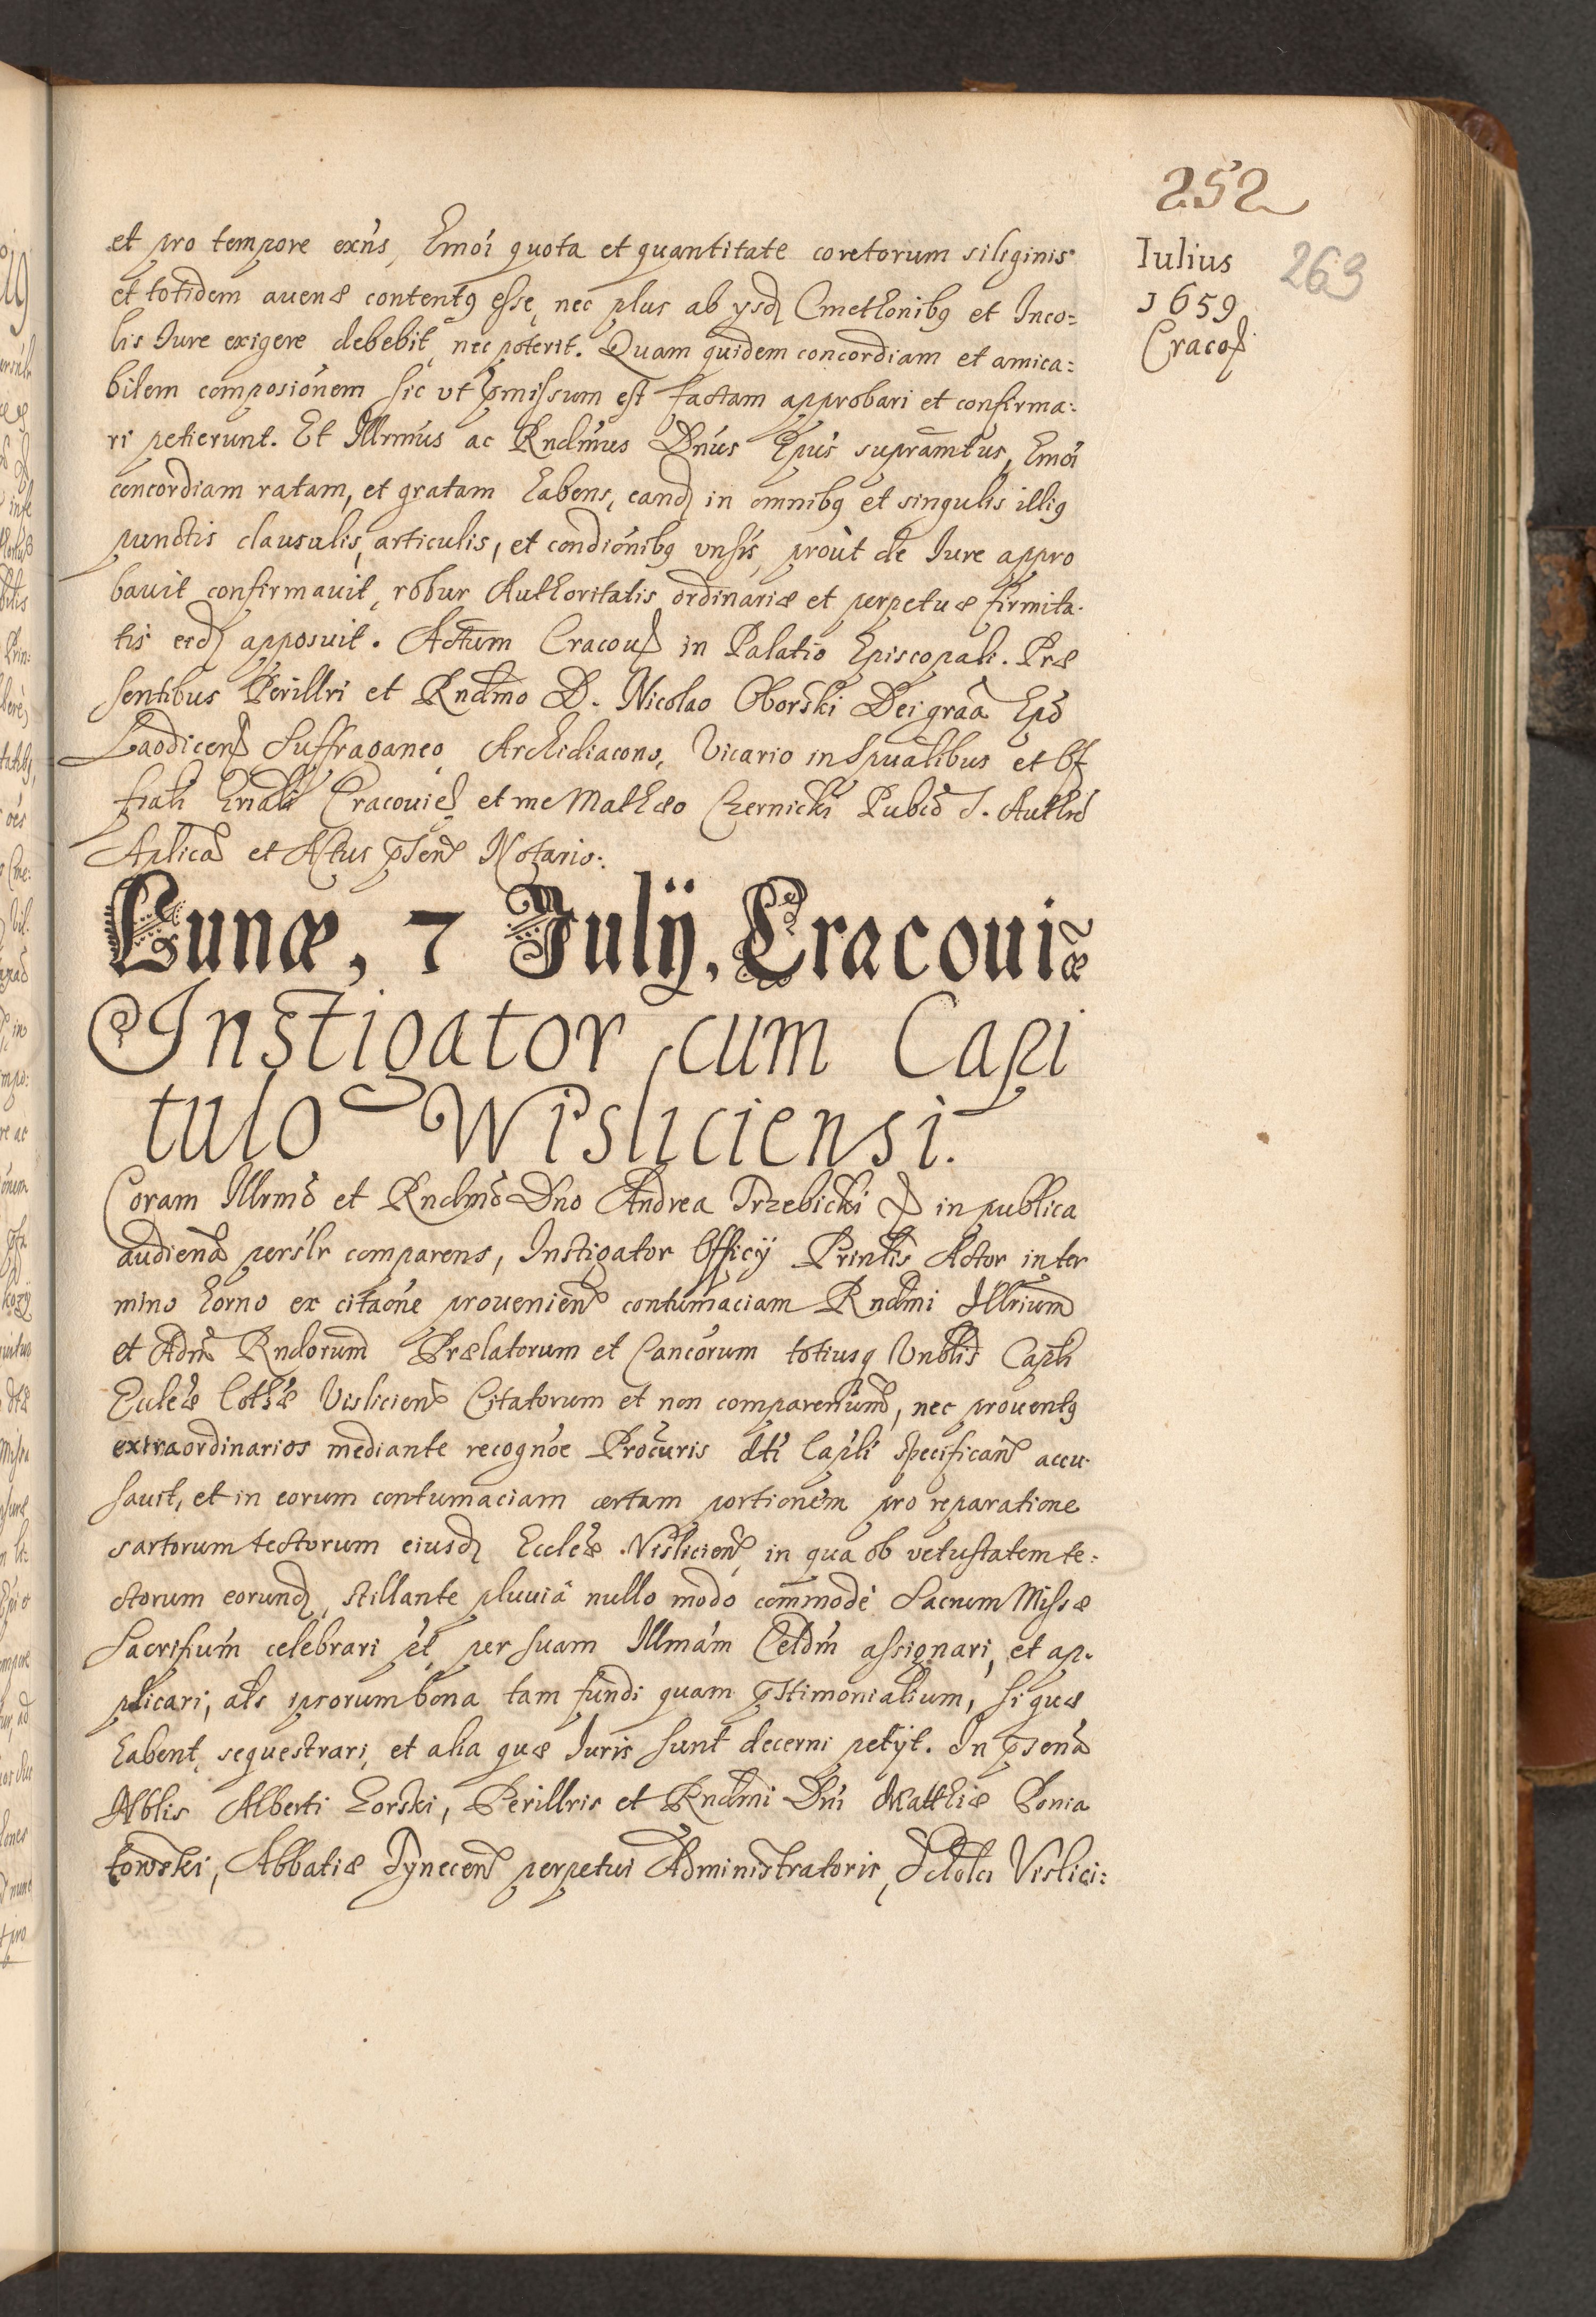 252
Iulius 263
1659
Cracoȝ
et pro tempore exñs, hmoi quota et quantitate coretorum siliginis
et totidem auenæ contentq esse, nec plus ab ysdȝ Cmethonibq et Inco=
lis Iure exigere debebit, nec poterit. Quam quidem concordiam et amica=
bilem composiónem sic ut pmissum est factam approbari et confirma=
ri petierunt. Et Illrmus ac Rndmus Dnus Epus supramtus, hmoi
concordiam ratam, et gratam habens, eandȝ in omnibq et singulis illiq
punctis clausulis, articulis, et condiónibq vnsis, proùt de Iure appro
bauit confirmauit, robur Authoritatis ordinariæ et perpetuæ firmita.
tis eidȝ apposuit. Actum Cracouȝ in Palatio Episcopali. Præ
sentibus Perillri et Rndmo D. Nicolao Oborski Dei graã Epo
Laodicenȝ Suffraganeo, Archidiacono, Vicario in Spualibus et Of
ficiali Gnali Cracouieȝ et me Mathæo Czernicki Pubco S. Authre
Aplica et Actus pnten Notario.
Lunæ, 7 Julij, Cracouiæ
Instigator cum Capi
tulo Wisliciensi.
Coram Illrmo et Rndmo Dno Andrea Trzebicki ȝ in publica
audiena perslr comparens, Instigator Officij Printis Actor in ter
mino horno ex citaóne prouenien contumaciam Rndmi Illrium
et Adm Rndorum Prælatorum et Cancorum totiusq Vnblis Capli
Ecclæ Collæ Vislicien Citatorum et non comparenium, nec prouentq
extraordinarios mediante recognóe Procuris dti Capli specifican accu.
sauit, et in eorum contumaciam certam portionem pro reparatione
sartorum tectorum eiusdȝ Ecclæ Vislicien, in qua ob vetustatem te=
ctorum eorundȝ, stillante pluuiâ nullo modo commodè Sacrum Missæ
Sacrifium celebrari pèt, per suam Illmam Celdm assignari, et ap.
plicari, als iprorum bona tam fundi quam pstimonialium, si quæ
habent, sequestrari, et alia quæ Iuris sunt decerni petijt. In psena
Nblis Alberti Gorski, Perillris et Rndmi Dni Matthiæ Ponia
towski, Abbatiæ Tynecen perpetui Administratoris, Scholci Vislici=